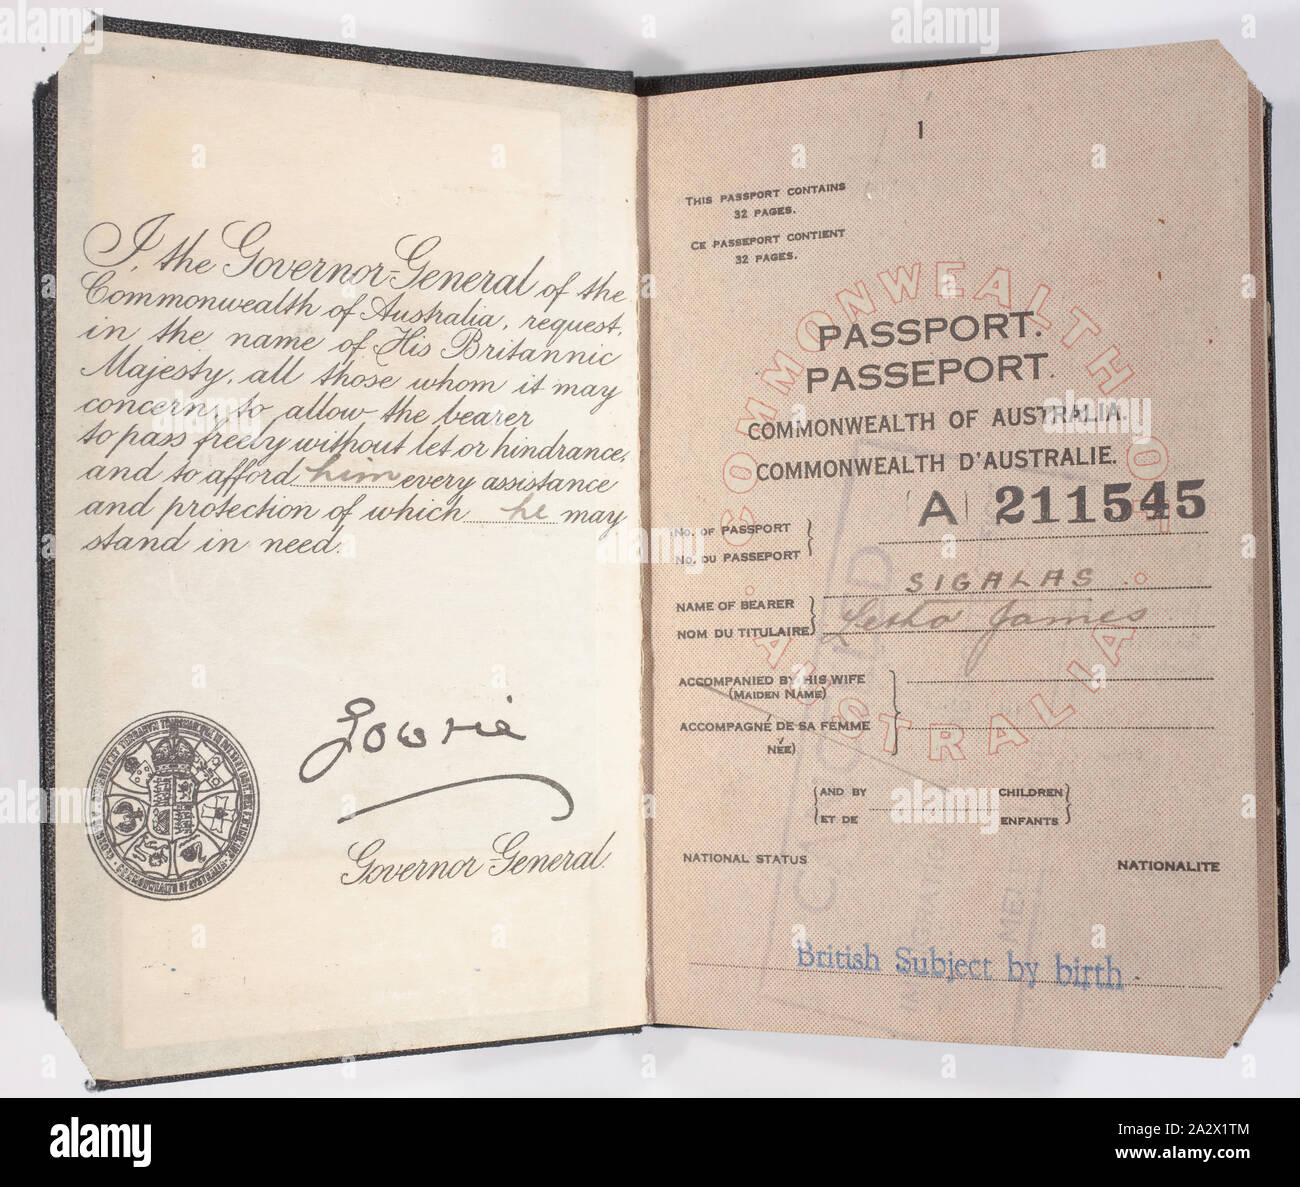 I, the Governor-General of the
Commonwealth of Australia, request,
in the name of His Britannic
Majesty, all those whom it may
concern, to allow the bearer
to pass freely without let or hindrance,
and to afford him every assistance
and protection of which he may
stand in need.
Gowrie
Governor General.
COMMONWEALTH OF AUSTRALIA
1
THIS PASSPORT CONTAINS
32 PAGES.
CE PASSEPORT CONTIENT
32 PAGES.
COMMONWEALTH OF
AUSTRALIA
PASSPORT.
PASSEPORT.
COMMONWEALTH OF AUSTRALIA.
COMMONWEALTH D'AUSTRALIE.
A 211545
No. OF PASSPORT
No. DU PASSEPORT
SIGALAS
NAME OF BEARER
NOM DU TITULAIRE
James
ACCOMPANIED BY HIS WIFE
(MAIDEN NAME)
ACCOMPAGNÉ DE SA FEMME
NÉE)
AND BY CHILDREN
ET DE ENFANTS
NATIONAL STATUS NATIONALITE
CANCELLED
British Subject by birth
alamy
alamy
Image ID: 2A2X1TM
www.alamy.com